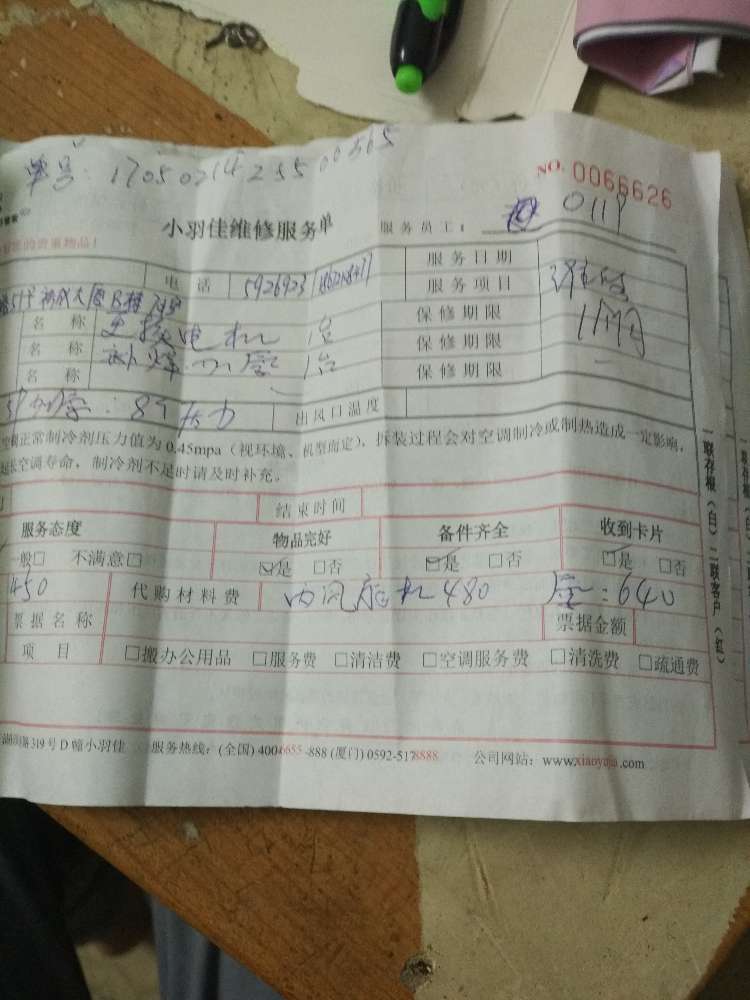 单号：1705021425500365
NO. 0066626
小羽佳维修服务单 服务员工： 0119
的贵重物品！
电话 5926923 服务日期
51号 大厦B栋 服务项目 维修
名称 更换电机 1台 保修期限 1个月
名称 补焊 1台 保修期限
名称 保修期限
：8个压力 出风口温度
空调正常制冷剂压力值为0.45mpa（视环境、机型而定），拆装过程会对空调制冷或制热造成一定影响，
空调寿命，制冷剂不足时请及时补充。
结束时间
服务态度 物品完好 备件齐全 收到卡片
般□ 不满意□ ☑是 □否 ☑是 □否 ☑是 □否
450 代购材料费 内风扇机480 ：640
票据名称 票据金额
项目 □搬办公用品 □服务费 □清洁费 □空调服务费 □清洗费 □疏通费
路319号D幢小羽佳 服务热线：(全国) 4006655-888 (厦门) 0592-5178888 公司网站：www.xiaoyujia.com
一联存根（白）二联客户（红）